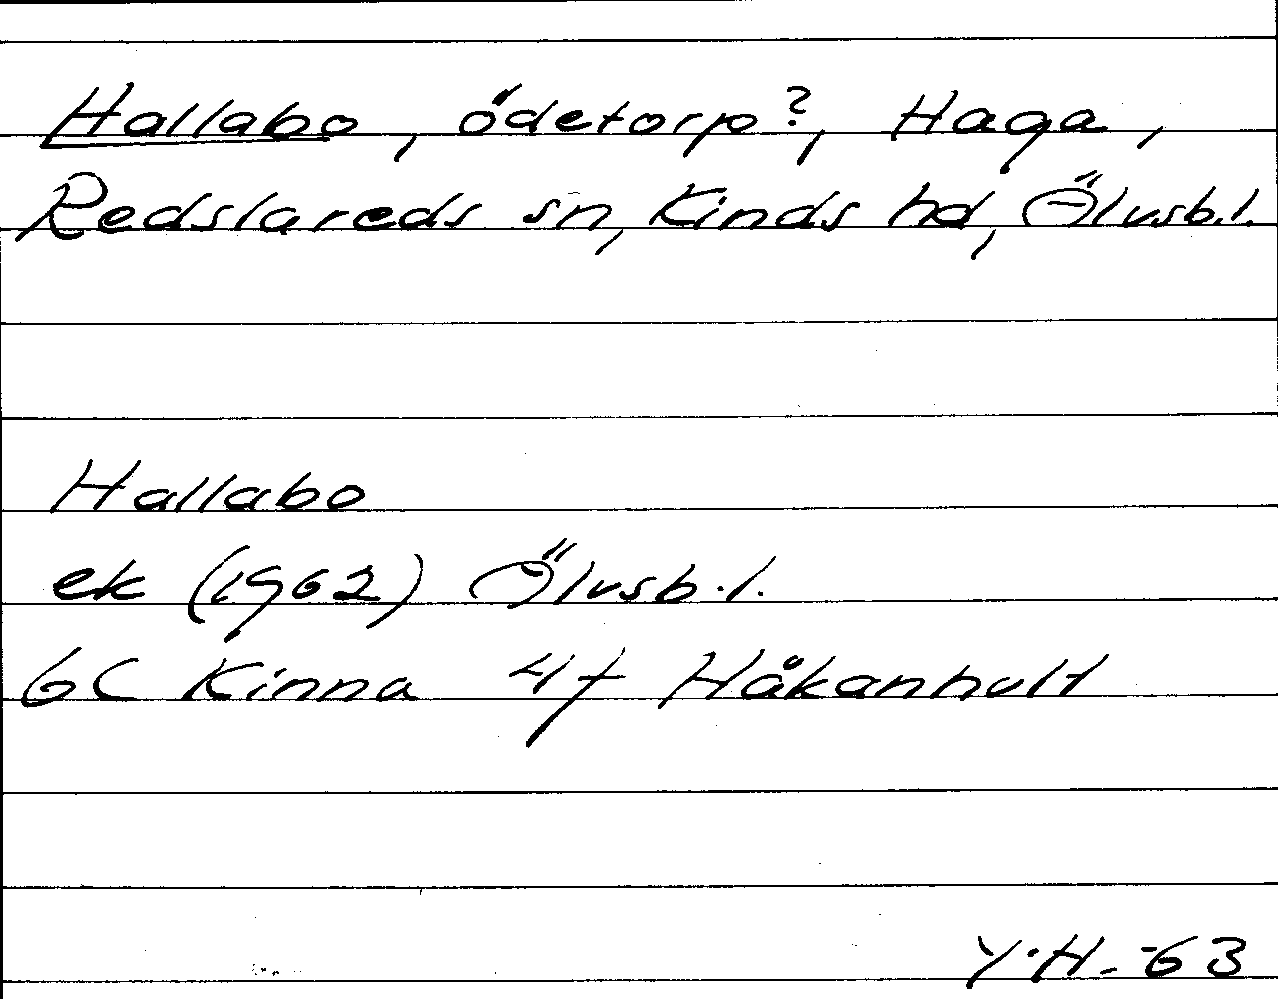 Hallabo, ödetorp?, Haga,
Redslareds sn, Kinds hd, Älvsb.l.
Hallabo
ek (1962) Älvsb.l.
6C Kinna 4f Håkanhult
Y.H.-63